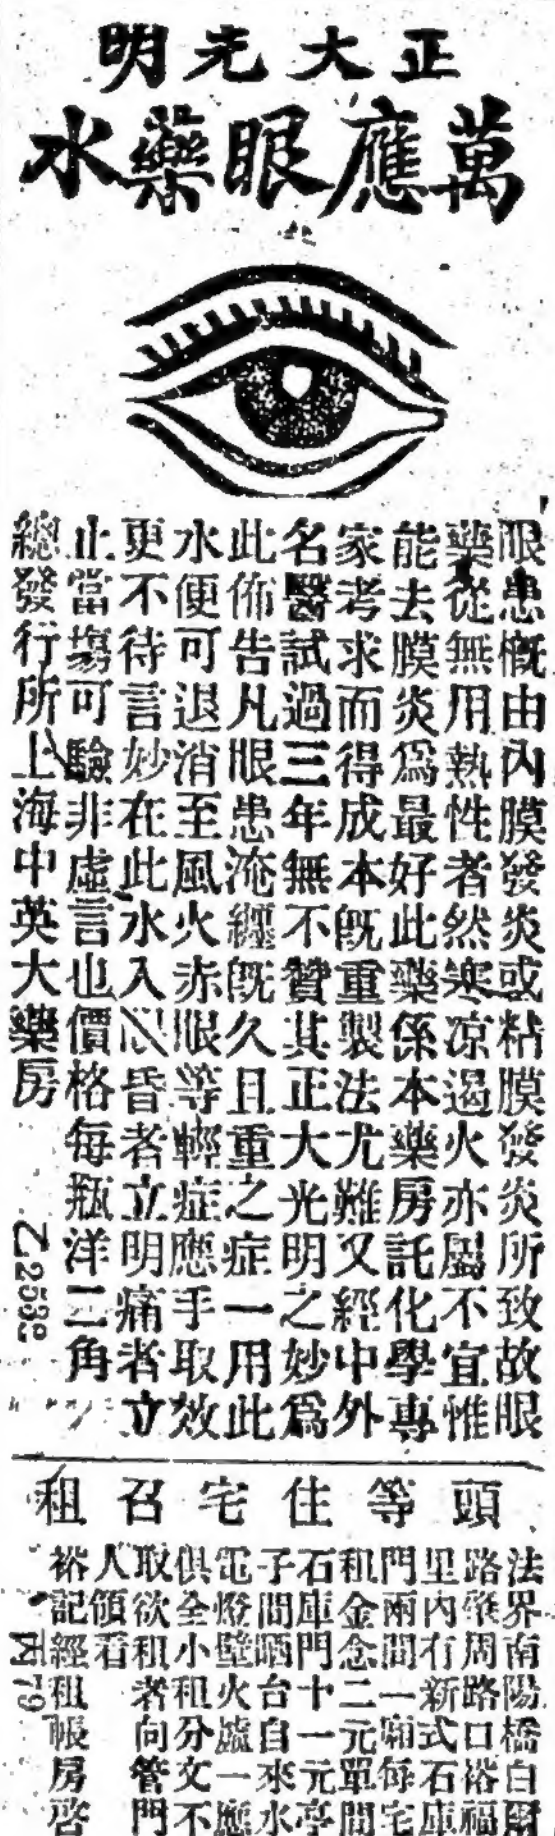 正大光明
萬應眼藥水
眼患慨由內膜發炎或粘膜發炎所致故眼
藥從無用熱性者然寒凉遏火亦屬不宜惟
能去膜炎爲最好此藥係本藥房託化學專
家考求而得成本旣重製法尤難又經中外
名醫試過三年無不贊其正大光明之妙爲
此佈告凡眼患淹纏旣久且重之症一用此
水便可退消至風火赤眼等輕症應手取效
更不待言妙在此水入眼昏者立明痛者立
止當塲可驗非虛言也價格每瓶洋二角
總發行所上海中英大藥房
乙2532
頭等住宅召租
法界南陽橋白爾
路肇周路口裕福
里內有新式石庫
門兩間一廂每宅
租金念二元單間
石庫門十一元亭
子間晒台自來水
電燈壁火爐一應
俱全小租分文不
取欲租者向管門
人領看
裕記經租帳房啓
丙79